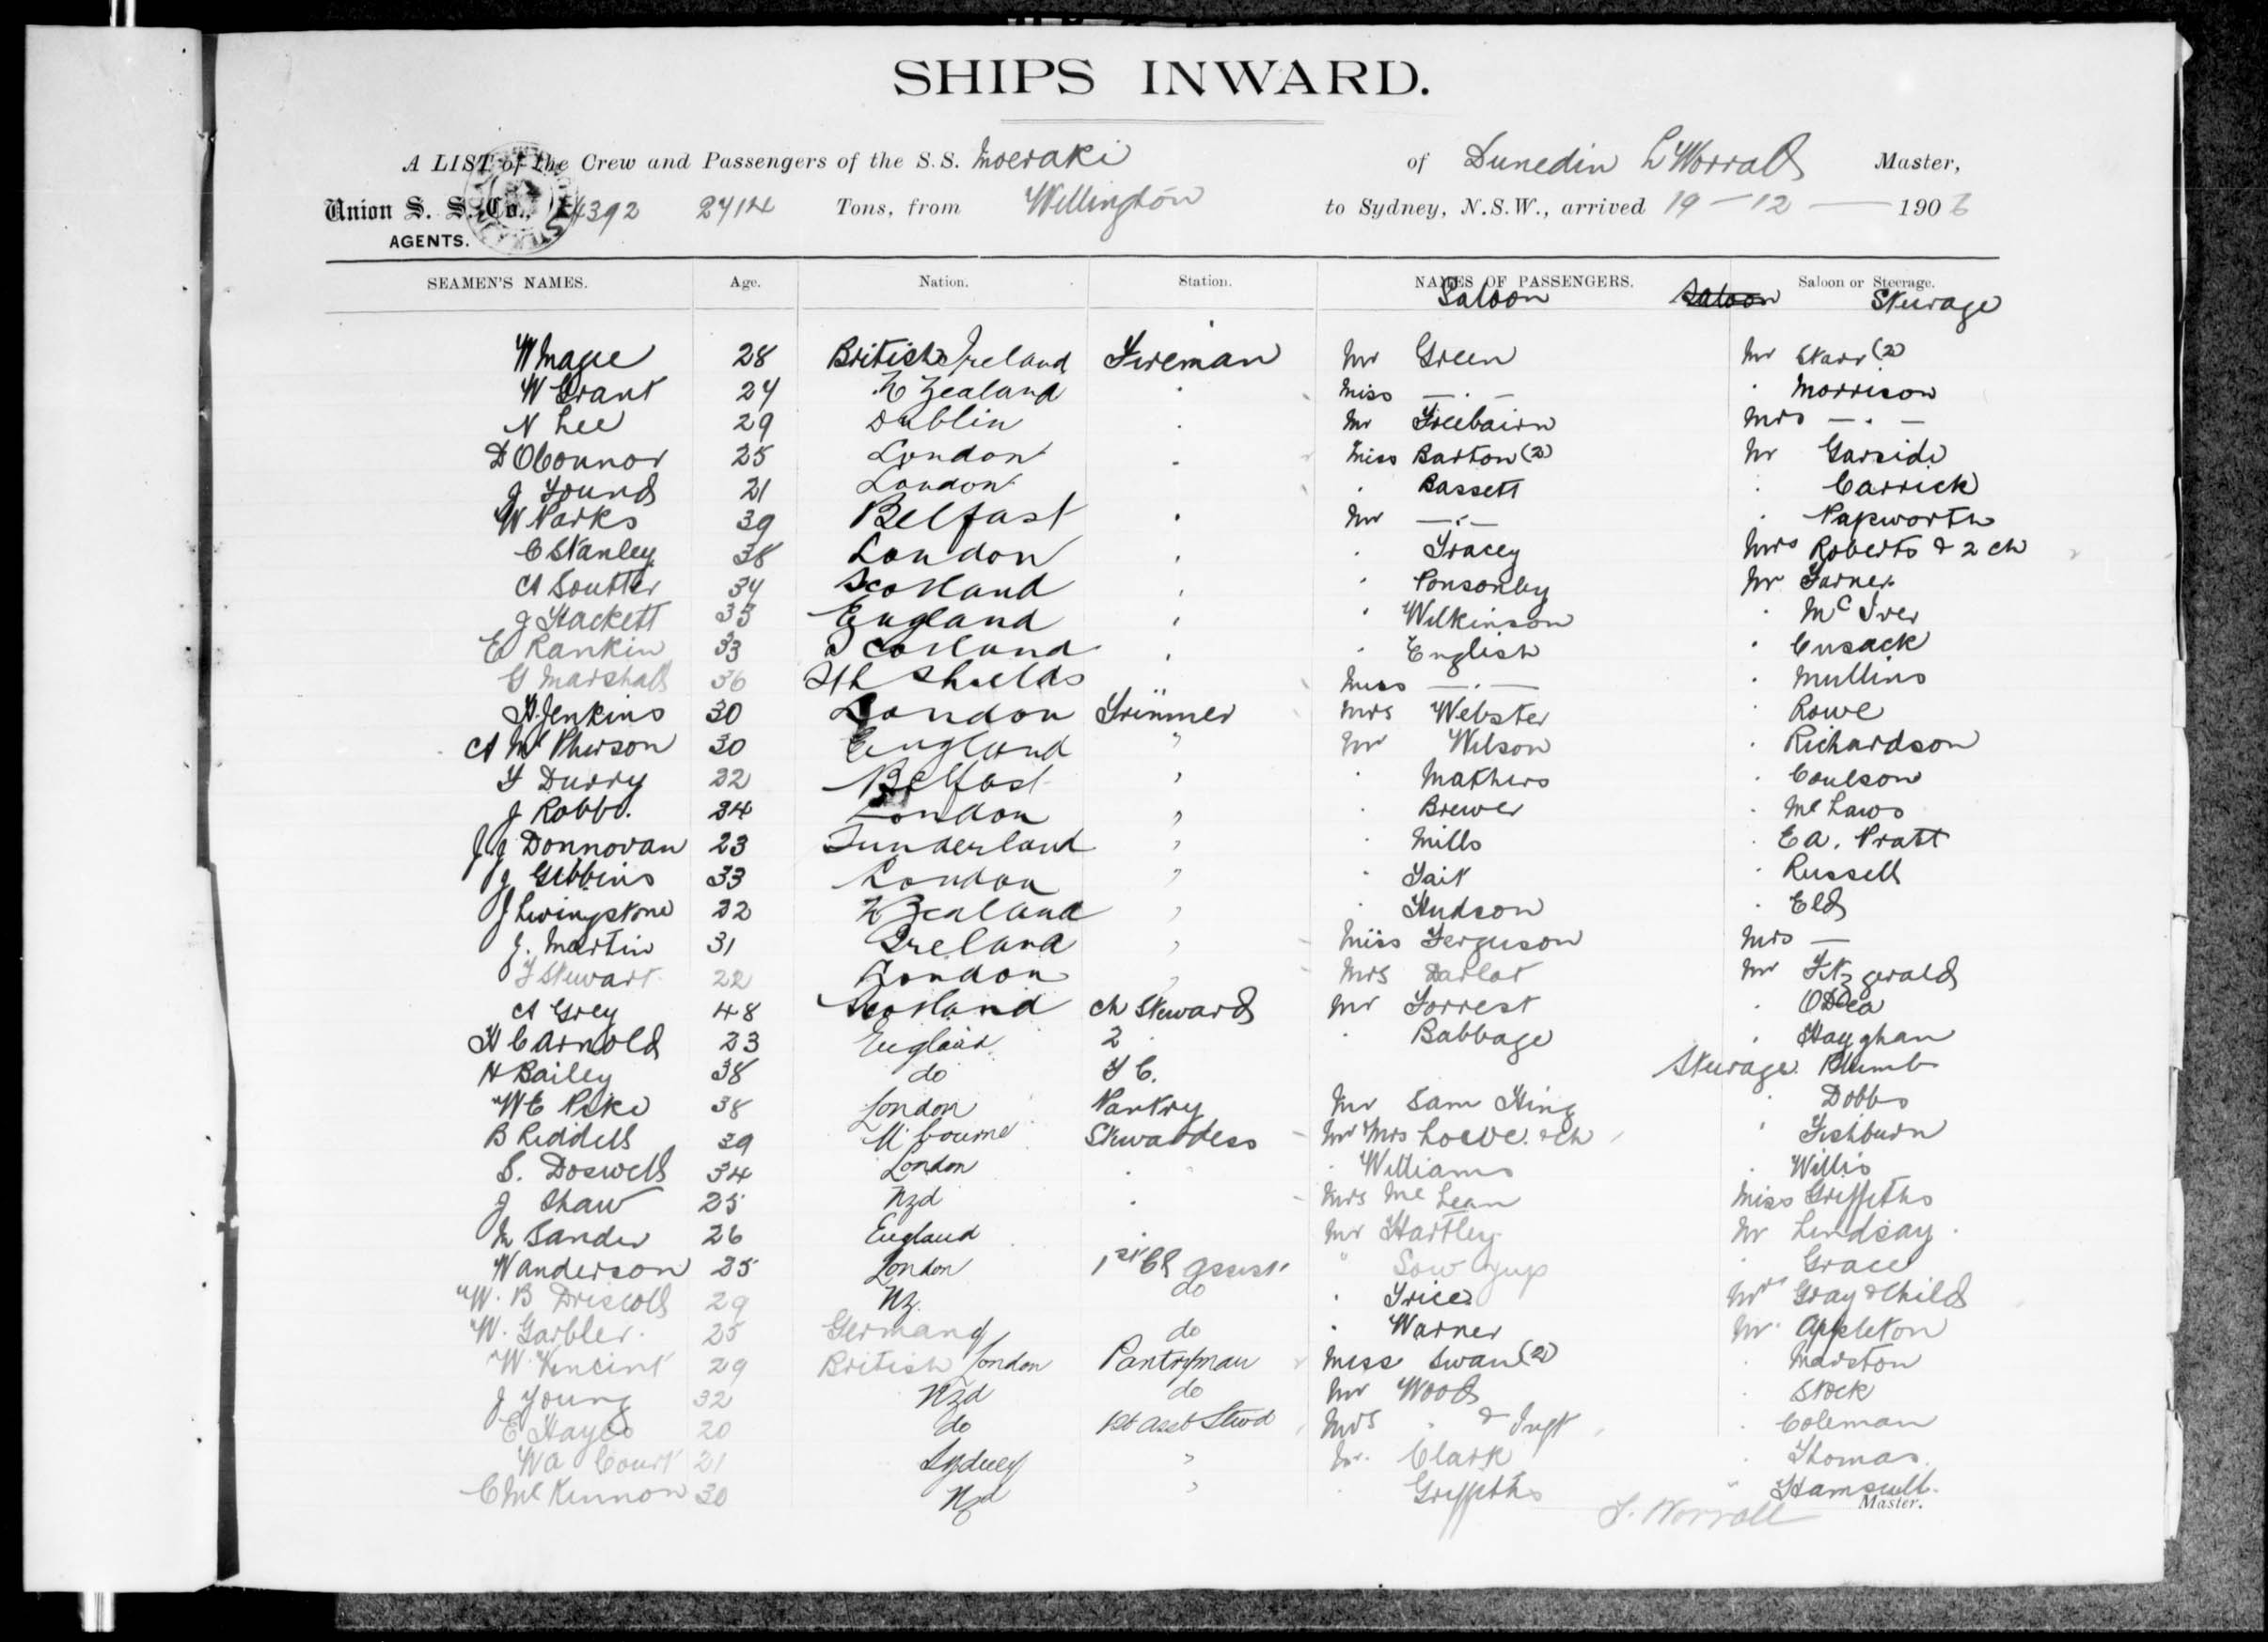 SHIPS INWARD.
A LIST of the Crew and Passengers of the S.S. Moeraki of Dunedin L Worrall Master,
Union S. S. Co., 4392 2714 Tons, from Wellington to Sydney, N.S.W., arrived 19 - 12 - 1906
AGENTS.
SEAMEN'S NAMES. Age. Nation. Station. NAMES OF PASSENGERS. Saloon or Steerage.
Saloon Saloon Steerage
W Magee 28 British Ireland Fireman Mr Green Mr Starr (2)
W Grant 24 N Zealand . Miss — . — . Morrison
N Lee 29 Dublin . Mr Freebairn Mrs — . —
D OConnor 25 London . Miss Barton (2) Mr Garside
J Young 21 London . Bassett . Carrick
W Parks 39 Belfast . Mr — . — . Papworth
C Stanley 38 London . . Tracey Mrs Roberts & 2 ch
A Soutter 34 Scotland . . Ponsonby Mr Farner
J Hackett 35 England . . Wilkinson . McIver
E Rankin 33 Scotland . . English . Cusack
G Marshall 36 Sth Shields Miss — . — . Mullins
H. Jenkins 30 London Trimmer Mrs Webster . Rowe
A McPherson 30 England " Mr Wilson . Richardson
F Durry 22 Belfast " . Mathers . Coulson
J Robb. 24 London " . Brewer . McLaws
J J Donnovan 23 Sunderland " . Mills . E A. Pratt
J Gibbins 33 London " . Tait . Russell
J Livingstone 22 N Zealand " . Hudson . Eld
J. Martin 31 Ireland " Miss Ferguson Mrs —
F Stewart 22 London " Mrs Darlot Mr Fitzgerald
A Grey 48 Scotland Ch Steward Mr Forrest . ODea
H C Arnold 23 England 2 . . Babbage . Hayghan
H Bailey 38 do F C. Steerage Plumb
W E Pike 38 London Pantry Mr Sam Hing . Dobbs
B Riddell 39 Mlbourne Stewardess Mr Mrs Loeve & ch . Fishburn
S. Doswell 34 London . . Williams . Willis
J Shaw 25 Nzd . Mrs McLean Miss Griffiths
M Sander 26 England . Mr Hartley Mr Lindsay
W anderson 25 London 1st Cl assist " Sow Yup . Grace
W. B Driscoll 29 NZ. do . Trice Mrs Gray & Child
W. Garbler. 25 Germany do . Warner Mr Appleton
W Vincint 29 British London Pantryman Miss Swan (2) . Marston
J Young 32 Nzd do Mr Wood . Stock
E Hayes 20 do 1st asst Stwd Mrs . & Inft . Coleman
W a Court 21 Sydney " Mr. Clark . Thomas
C McKinnon 30 Nzd " . Griffiths
L. Worrall Master.